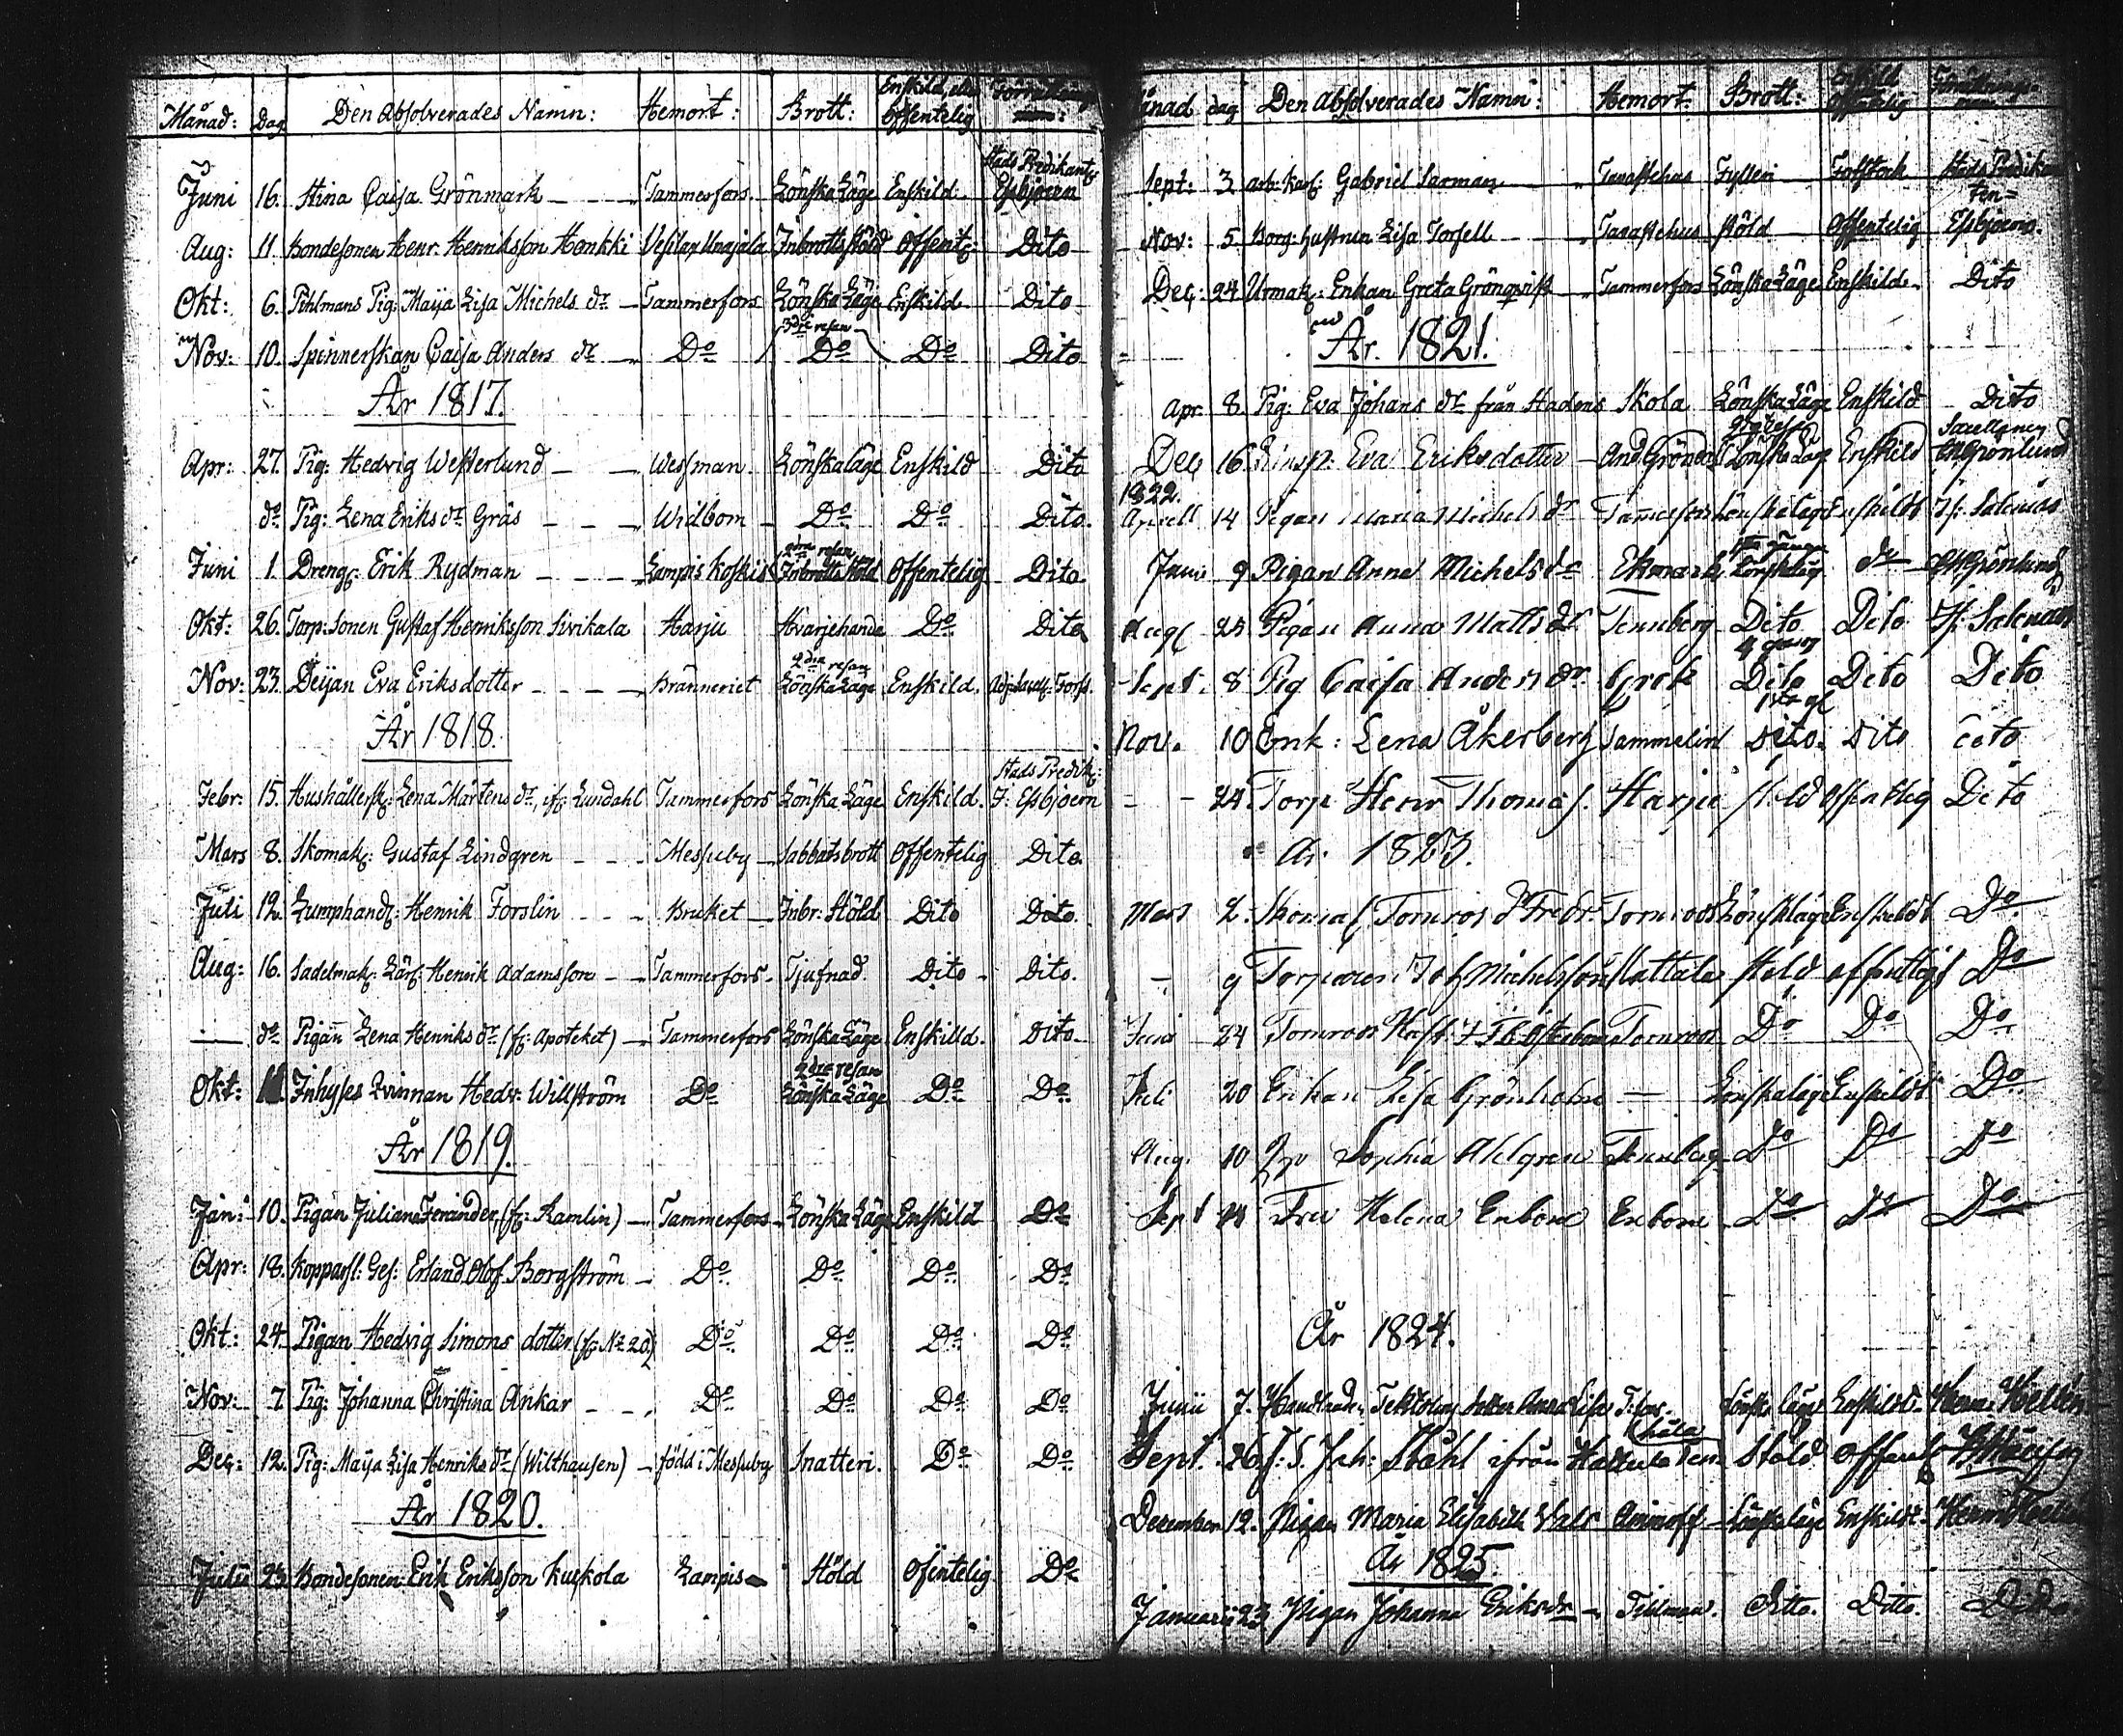 Månad: Dag Den Absolverades Namn: Hemort: Brott: Enskild, eller Offentelig
Juni 16. Stina Caisa Grönmark Tammerfors. Lönska Läge Enskild Stads Predikant: Essbjoern
Aug: 11. Bondesonen Henr: Henriksson Honkki Vesilax Inbrotts Stöld Offentl: Dito
Okt: 6. Pihlmans Pig: Maija Lisa Michels dr Tammerfors Lönska Läge Enskild Dito
Nov: 10. Spinnerskan Caisa Anders dr Do 3die resan Do Do Dito
År 1817.
Apr: 27. Pig: Hedvig Westerlund Wessman Lönskaläge Enskild Dito
do Pig: Lena Eriks dr Gräs Widbom Do Do Dito.
Juni 1. Dreng: Erik Rydman Lampis Koskis 2dra resan Inbrotts Stöld Offentelig Dito
Okt: 26. Torp: Sonen Gustaf Henriksson Sirikala Harju Hvarjehanda Do Dito
Nov: 23. Deijan Eva Eriksdotter Bränneriet 2dra resan Lönska Läge Enskild.
År 1818.
Febr: 15. Hushållersk: Lena Mårtens dr, Lundahl Tammerfors Lönska Läge Enskild. Stads Predik: J. Essbjoern
Mars 8. Skomak: Gustaf Lindgren Messuby Sabbatsbrott Offentelig Dito
Juli 12. Lumphand: Henrik Forslin Bruket Inbr: Stöld Dito Dito.
Aug: 16. Sadelmak: Lärl: Henrik Adamsson Tammerfors. Tjufnad. Dito Dito.
do Pigan Lena Henriks dr (fr: Apoteket) Tammerfors Lönska Läge Enskilld. Dito
Okt: Inhyses Qvinnan Hedv: Willström Do 2dra resan Lönska Läge Do Do
År 1819.
Jan: 10. Pigan Juliana Ferander, (fr: Ramlin) Tammerfors Lönska Läge Enskild Do
Apr: 18. Kopparsl: Ges: Erland Olof Borgström Do Do Do Do
Okt: 24. Pigan Hedvig Simons dotter (fr: No 20.) Do Do Do Do
Nov: 7 Pig: Johanna Christina Ankar Do Do Do Do
Dec: 12. Pig: Maija Lisa Henriks dr (Wilthausen) född i Messuby Snatteri. Do Do
År 1820.
Julii 23. Bondesonen Erik Eriksson Kuskola Lampis Stöld Ofentelig Do
Månad dag Den Absolverades Namn: Hemort: Brott: Enskild Offentelig Förrättnings-
Sept: 3 arb: Karl: Gabriel Sarman Tavastehus Fylleri Fotstock Stads Predikan
ten
Nov: 5 Borg: hustrun Lisa Torsell Tavastehus Stöld Offentelig Essbjoern.
Dec: 24 Urmak: Enkan Greta Grönqvist Tammerfors Lönska Läge Enskilde Dito
År 1821.
Apr 8. Pig: Eva Johans dr från Stadens Skola Lönska Läge Enskild Dito
Dec 16. Eva Eriksdotter And Gröndal Lönska Läge Enskild Grönlund
1822.
Aprell 14 Pigan Maria Michels dr Tammerfors Lönskaläge Enskildt Salenius
Juni 9 Pigan Anna Michels dr Ekmark Lönskeläg do Grönlund
Aug 25 Pigan Anna Matts dr Tennberg Dito Dito Salenius
Sept. 8 Pig Caisa Anders dr 4 gång Dito Dito Dito
Nov. 10 Enk: Lena Åkerberg Sammelin Dito. Dito Dito
24. Torp Henr Thomas. Harju Stöld Offentelig Dito
År 1823.
Mars 2. Thomas Tornros Tornroos Lönskläge Enskildt Do
9 Torparen Joh Michelsson Hattala Stöld offentligt Do
Juni 24 Tornroos Tornroos Do Do Do
Juli 20 Enkan Lisa Grönholm Lönskaläge Enskildt Do
Aug. 10 Sophia Ahlgren Tennberg Do Do Do
Sept Fru Helena Enbom Enbom Do Do Do
År 1824.
Junii 7. dotter Anna Lisa T:fors. Lönska läge Enskildt Herm: Hellén
Sept. 26 Joh: Ståhl ifrån Hattula Stöld offentl
December 12. Pigan Maria Elisabeth Aminoff Lönskaläge Enskildt Herm Hellén
År 1825.
Januarii 23 Pigan Johanna Eriksdr Tillman. Ditto. Ditto.